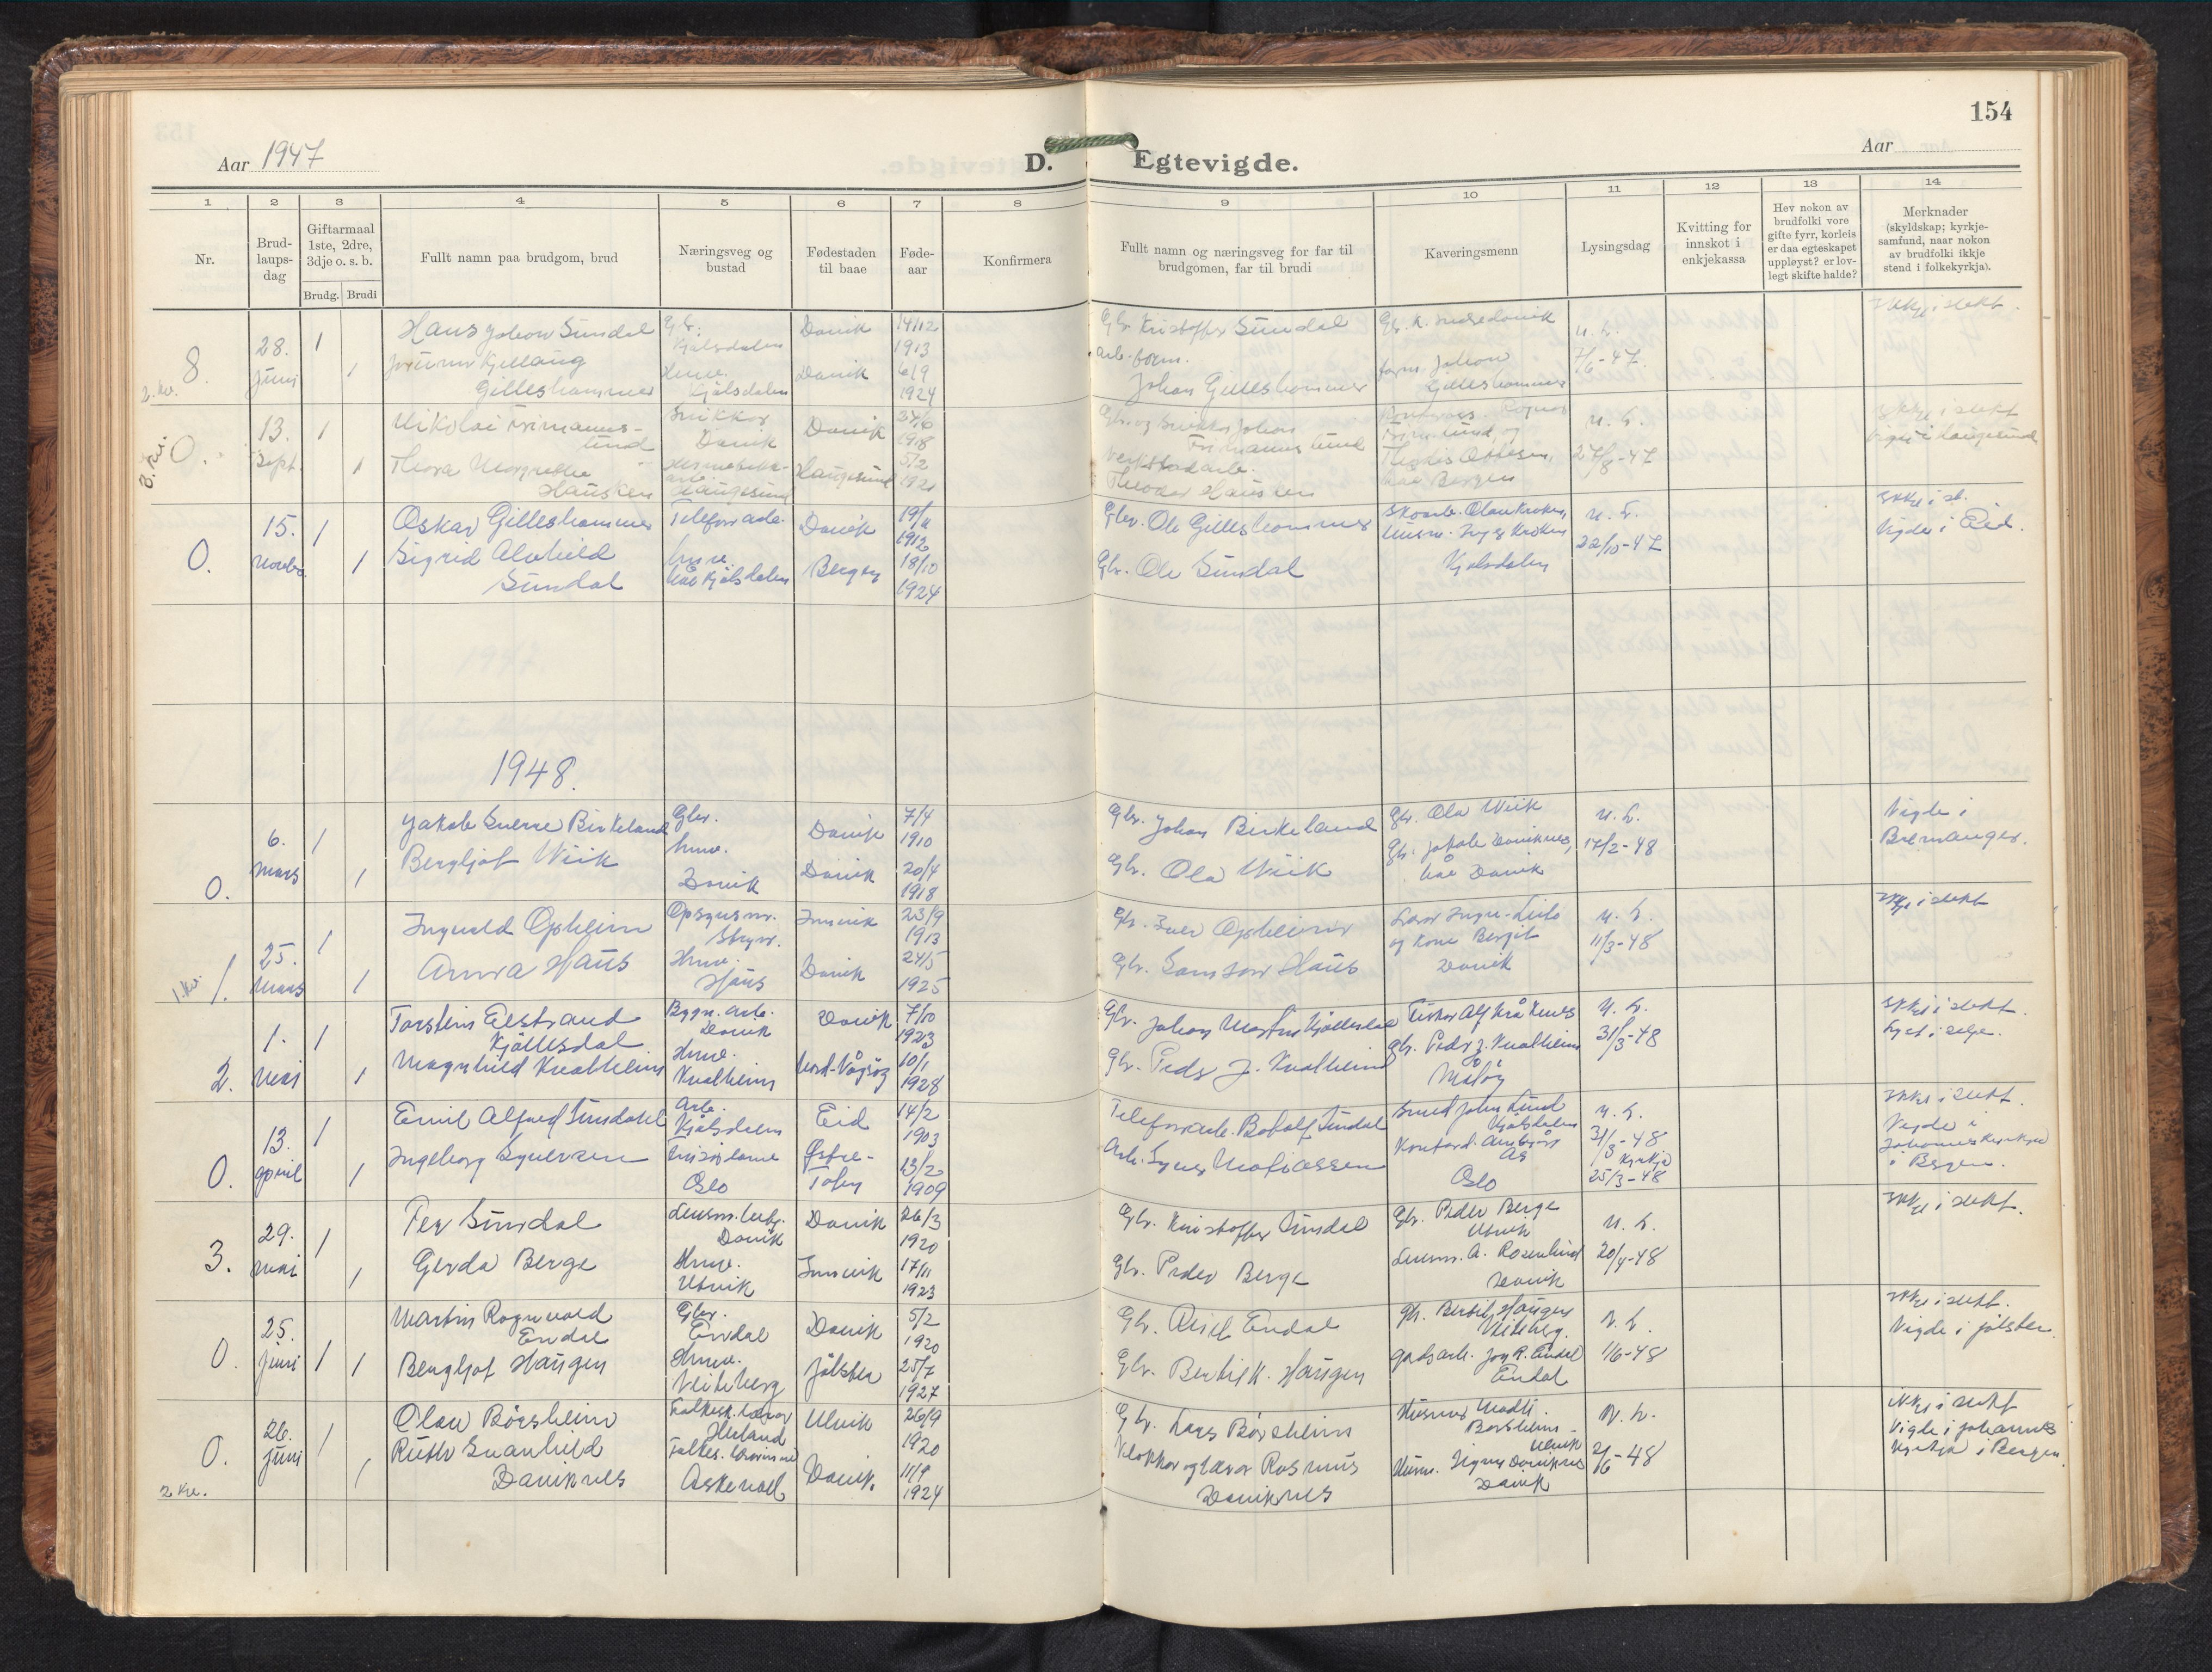 154
Aar 1947
D. Egtevigde.
Aar
1 2 3 4 5 6 7 8 9 10 11 12 13 14
Nr.
Brud-
laups-
dag
Giftarmaal
1ste, 2dre,
3dje o. s. b.
Brudg. Brudi
Fullt namn paa brudgom, brud
Næringsveg og
bustad
Fødestaden
til baae
Føde-
aar
Konfirmera
Fullt namn og næringsveg for far til
brudgomen, far til brudi
Kaveringsmenn
Lysingsdag
Kvitting for
innskot i
enkjekassa
Hev nokon av
brudfolki vore
gifte fyrr, korleis
er daa egteskapet
uppløyst? er lov-
legt skifte halde?
Merknader
(skyldskap; kyrkje-
samfund, naar nokon
av brudfolki ikkje
stend i folkekyrkja).
8. 2. kv.
28. juni
1 1
Hans Johan Sundal
Kjellaug
Gilleshammer
Kjølsdalen
Kjølsdalen
Davik
Davik
14/12
1913
6/9
1924
Gbr. Kristoffer Sundal
Johan Gilleshammer
Johan
Gilleshammer
7/6-47.
Ikkje i slekt.
0.
13. sept.
1 1
Nikolai Frimanns-
lund
Thora Margrethe
Hausken
Snikkar
Davik
Haugesund
Davik
Haugesund
1918
5/2
1921
Gbr. og snikkar Johan
Frimannslund
Theodor Hausken
båe Bergen
u. h.
27/8-47
Ikkje i slekt
Vigde i Haugesund
0.
15. novbr.
1 1
Oskar Gilleshammer
Sigrid Alvhild
Sundal
Telefonarb.
hmv.
båe Kjølsdalen
Davik
Bergen
19/11
1912
18/10
1924
Gbr. Ole Gilleshammer
Gbr. Ole Sundal
Skoarb. Olav Kroken,
Kjølsdalen
u. h.
22/10-47
Ikkje i sl.
Vigde i Eid.
1948.
0.
6. mars
1 1
Jakob Sverre Birkeland
Bergljot Wiik
Gbr.
hmv.
Davik
Davik
Davik
7/4
1910
20/4
1918
Gbr. Johan Birkeland
Gbr. Ola Wiik
Gbr. Ola Wiik
Gbr. Jakob Daviknes,
båe Davik
u. h.
17/2-48
Vigde i
Bremanger.
1. 1. kv.
25. mars
1 1
Ingvald Opheim
Anna Haus
Opsynsm.
Stryn.
Hmv.
Haus
Innvik
Davik
23/9
1913
24/5
1925
Gbr. Iver Opheim
Gbr. Samson Haus
og kone Bergit
Davik
u. h.
11/3-48
Ikkje i slekt
2.
1. mai
1 1
Torstein Elstrand
Kjøllesdal
Magnhild Kvalheim
Bygn. arb.
Davik
Hmv.
Kvalheim
Davik
Nord-Vågsøy
7/10
1923
10/1
1928
Gbr. Johan Martin Kjøllesdal
Gbr. Peder J. Kvalheim
Fiskar Alf Kråkenes
gbr. Peder J. Kvalheim
Måløy
u. h.
31/3-48
Ikkje i slekt.
Lyst i Selje.
0.
13. april
1 1
Emil Alfred Sundal
Ingeborg Syversen
Arb.
Kjølsdalen
Frisørdame
Oslo
Eid
Østre-
Toten
14/2
1903
13/2
1909
Telefonarb. Botolf Sundal
Arb. Syver Mathiassen
Smed John Lund
Kjølsdalen
Oslo
u. h.
31/3-48
25/3-48
Ikkje i slekt.
Vigde i
Johanneskyrkja
i Bergen.
3.
29. mai
1 1
Per Sundal
Gerda Berge
Lensm. betj.
Davik
Hmv.
Utvik
Davik
Innvik
26/3
1920
17/11
1923
Gbr. Kristoffer Sundal
Gbr. Peder Berge
Gbr. Peder Berge
Utvik
Lensm. A. Rosenlund
Davik
u. h.
20/4-48
Ikkje i slekt.
0.
25. juni
1 1
Martin Ragnvald
Endal
Bergljot Haugen
Gbr.
Endal
Hmv.
Veiteberg
Davik
Jølster
5/2
1920
25/7
1927
Gbr. Axel Endal
Gbr. Bertil K. Haugen
gbr. Bertil Haugen
Veiteberg.
gardsarb. Jon R. Endal
Endal
u. h.
1/6-48
Ikkje i slekt.
Vigde i Jølster.
0. 2 kv.
26. juni
1 1
Olav Børsheim
Ruth Svanhild
Daviknes
Folkesk. lærar
Herland
Folkes. lærarinne
Askevoll
Ulvik
Davik.
26/9
1920
11/9
1924
Gbr. Lars Børsheim
Klokkar og lærar Rasmus
Daviknes
Husmor Madli
Børsheim -
Ulvik
Husm. Signe Daviknes
Davik
u. h.
2/6-48
Ikkje i slekt
Vigde i Johannes
kyrkja i Bergen.